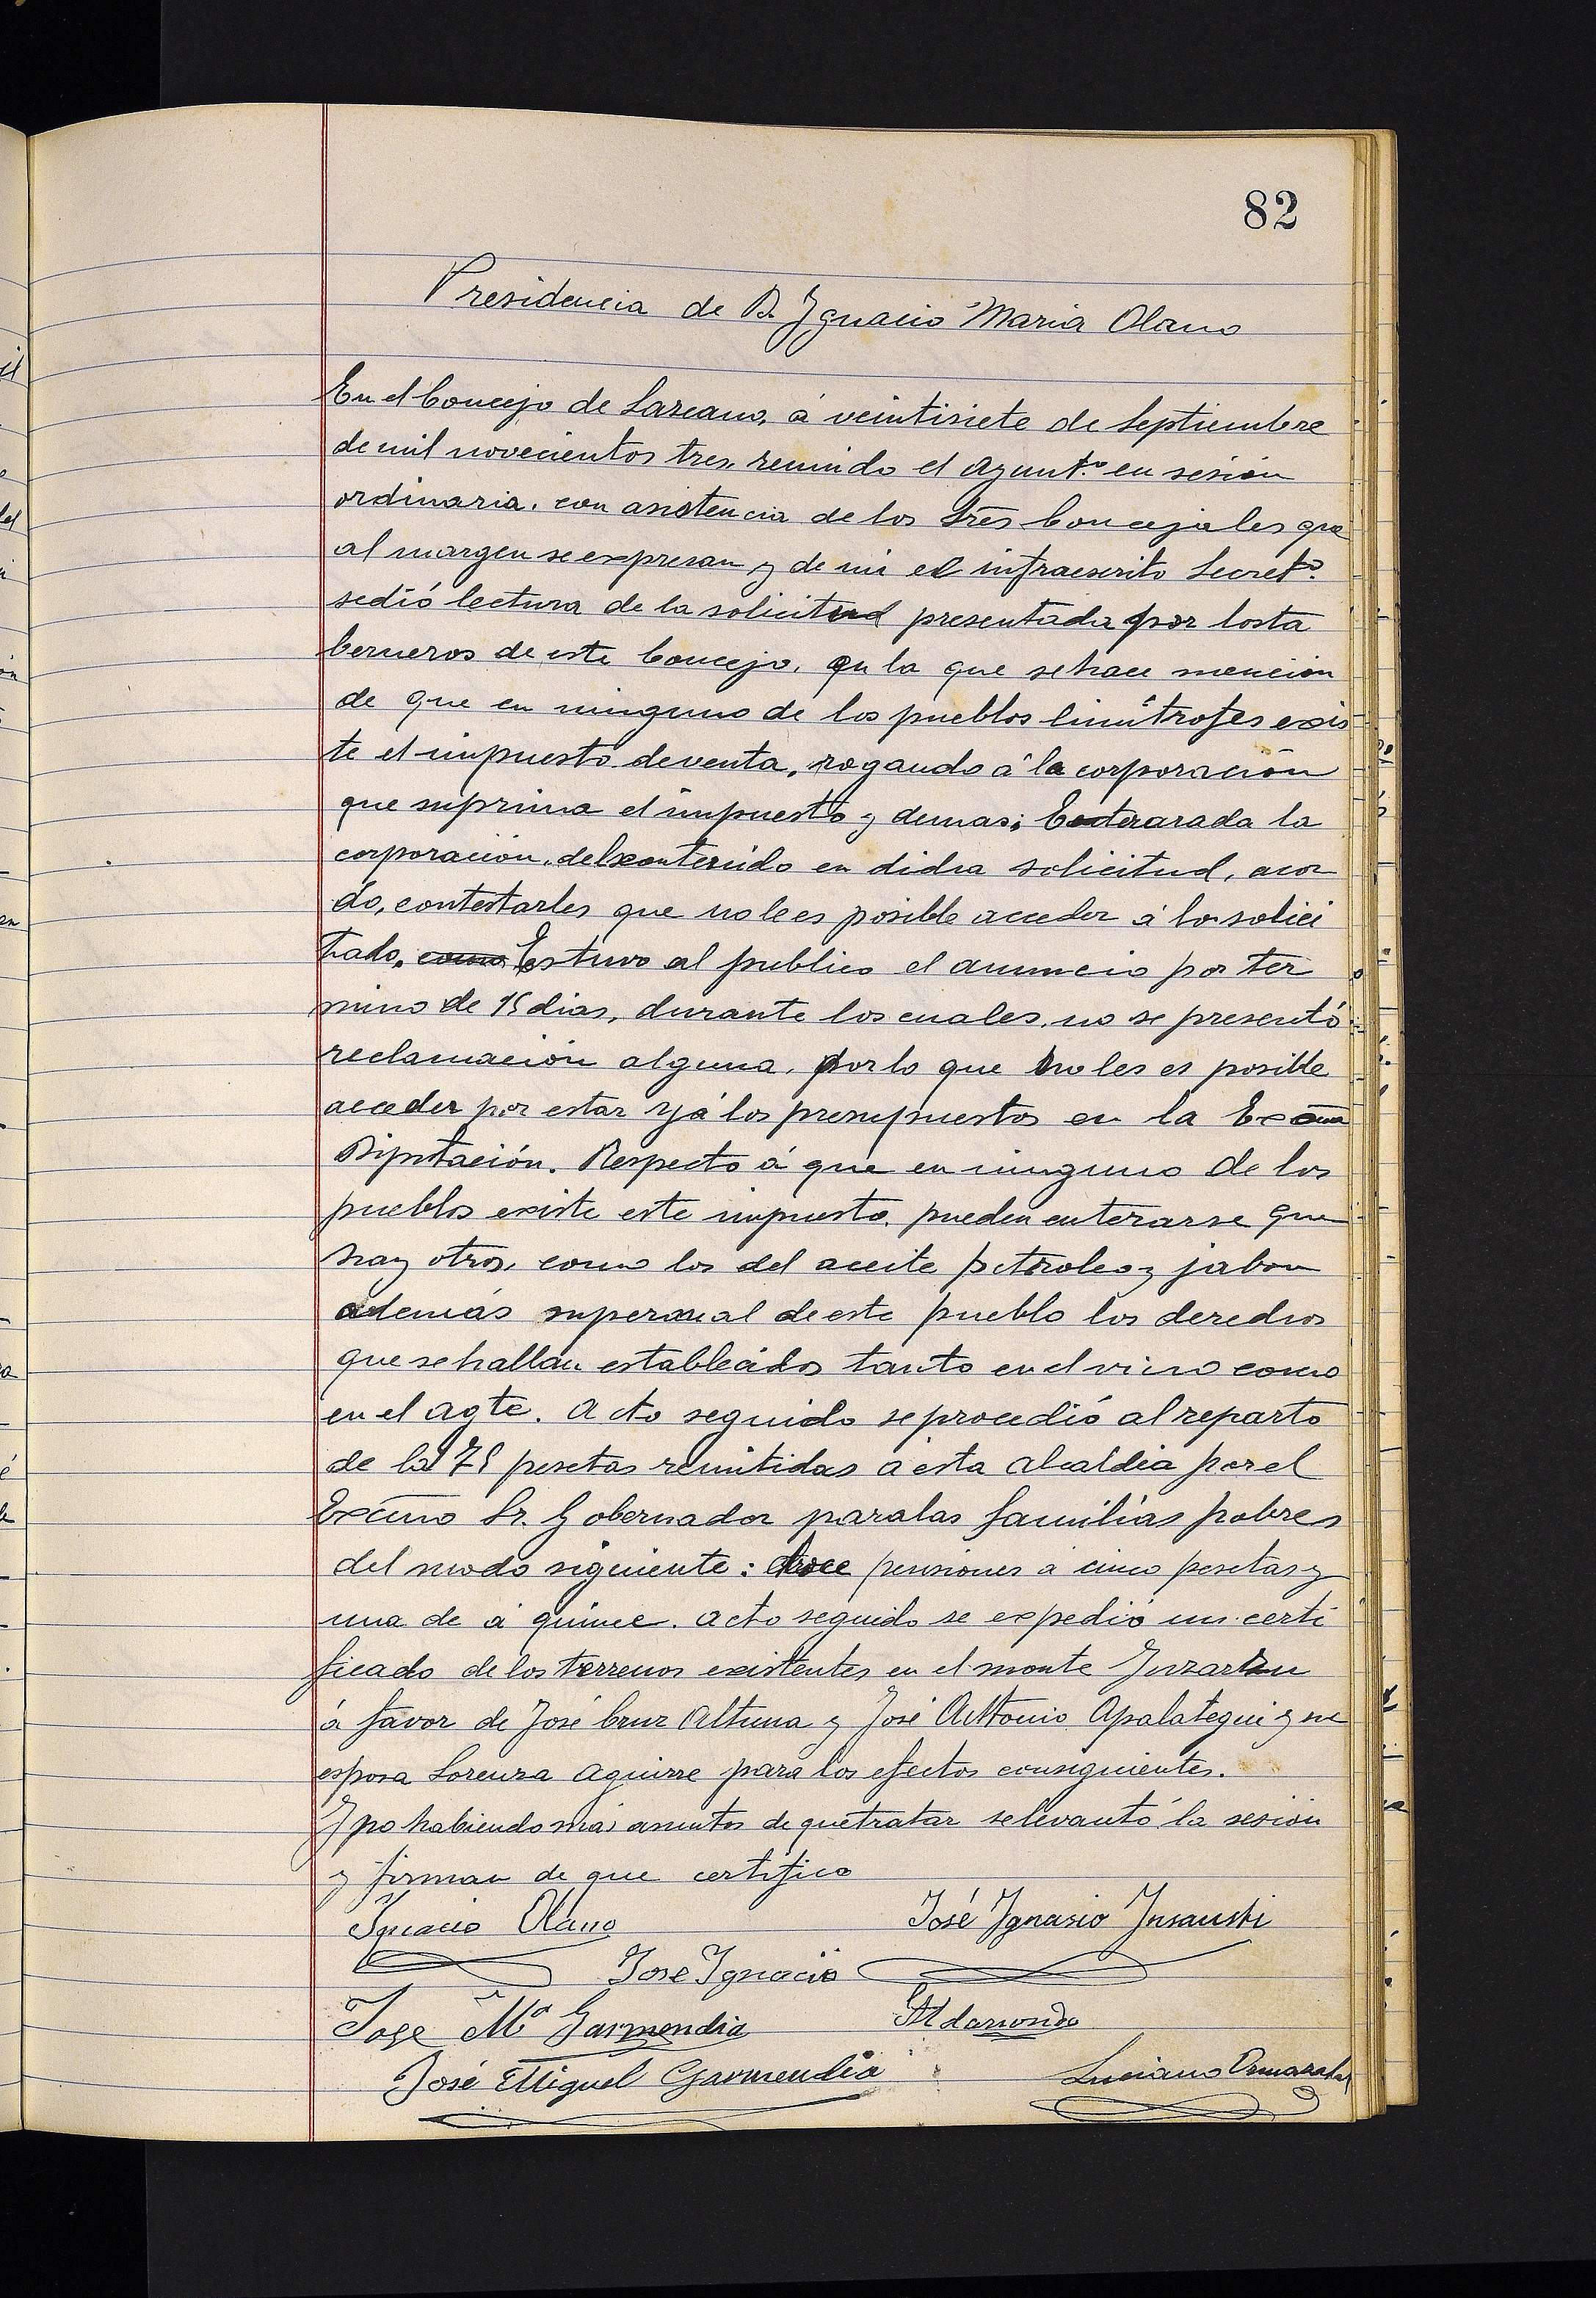 82
Presidencia de D. Ygnacio Maria Olano
En el Concejo de Lazcano, á veintisiete de Septiembre
de mil novecientos tres, reunido el Ayunt.º en sesión
ordinaria, con asistencia de los Sres Concejales que
al margen se expresan y de mi el infraescrito Secretº.
se dió lectura de la solicitud presentada por los ta
berneros de este Concejo, en la que se hace mención
de que en ninguno de los pueblos limítrofes exis
te el impuesto de venta, rogando á la corporación
que suprima el impuesto y demas; la
corporación, del contenido en dicha solicitud, acor
dó, contestarles que no le es posible acceder á lo solici
tado, como Estuvo al publico el anuncio por ter
mino de 15 dias, durante los cuales, no se presentó
reclamación alguna, por lo que no les es posible
acceder por estar yá los presupuestos en la Excma
Diputación. Respecto á que en ninguno de los
pueblos existe este impuesto, pueden enterarse que
hay otros, como los del aceite petroleo y jabon
además superan al de este pueblo los derechos
que se hallan establecidos tanto en el vino como
en el agte. Acto seguido se procedió al reparto
de las 75 pesetas remitidas á esta alcaldia por el
Excmo Sr. Gobernador para las familias pobres
del modo siguiente: doce pensiones á cinco pesetas y
una de á quince. Acto seguido se expedió un certi
ficado de los terrenos existentes en el monte
á favor de José Cruz Altuna y José Antonio Apalategui y su
esposa Lorenza Aguirre para los efectos consiguientes.
Y no habiendo más asuntos de que tratar se levantó la sesión
y firman de que certifico
Ignacio Olano José Ygnasio Insausti
José Ygnacio
Jose Mª Garmendia Aldasoro
José Miguel Garmendia Luciano